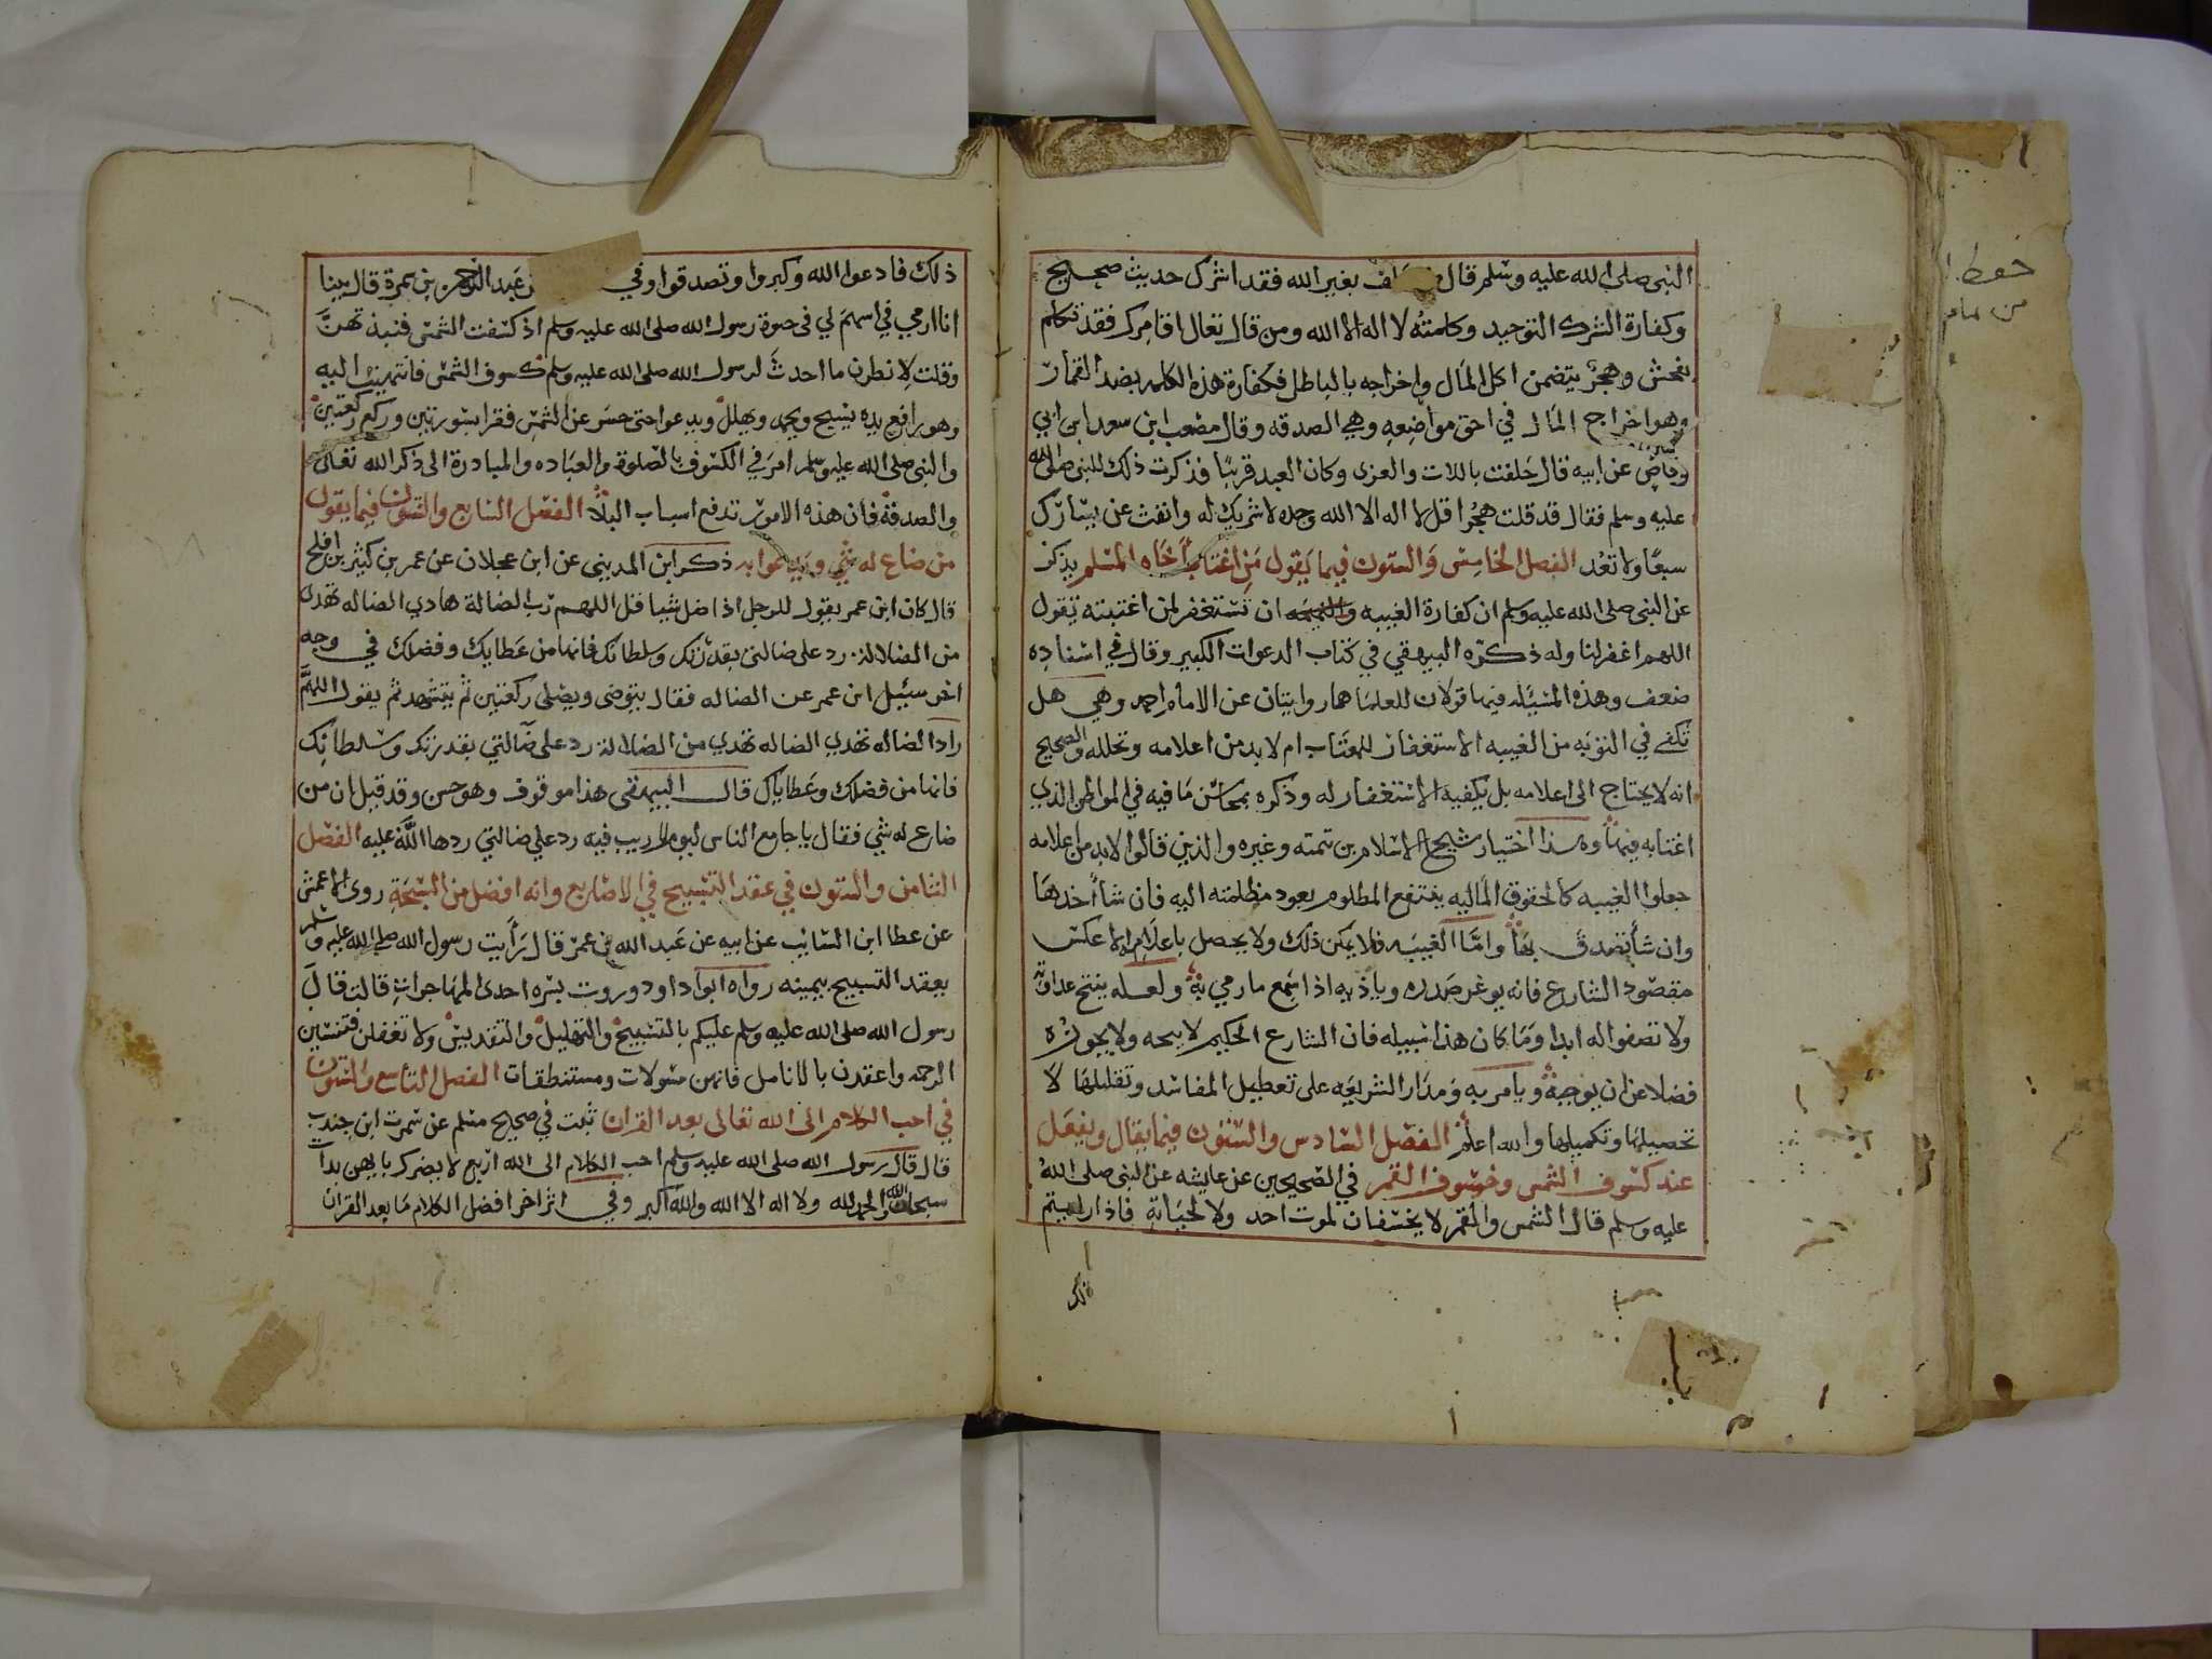 النبي صلى الله عليه وسلم قال بغير الله فقد اشرك حديث صحيح
وكفارة الشرك التوحيد وكلمته لا اله الا الله ومن قال تعال اقامرك فقد تكلم
بفحش وهجر يتضمن اكل المال واخراجه بالباطل فكفارة هذه الكلمه بضد القمار
وهو اخراج المال في احق مواضعه وهي الصدقه وقال مصعب ابن سعد ابن ابي
وقاص عن ابيه قال حلفت باللات والعزى وكان العهد قريبا فذكرت ذلك للنبي صلى الله
عليه وسلم فقال قد قلت هجرا قل لا اله الا الله وحده لا شريك له وانفث عن يسارك
سبعا ولا تعد الفصل الخامس والستون فيما يقول من اغتاب أخاه المسلم يذكر
عن النبي صلى الله عليه وسلم ان كفارة الغيبه ان تستغفر لمن اغتبته تقول
اللهم اغفر لنا وله ذكره البيهقي في كتاب الدعوات الكبير وقال في اسناده
ضعف وهذه المسئله فيها قولان للعلما هما روايتان عن الامام احمد وهي هل
تكفي في التوبه من الغيبه الاستغفار للمغتاب ام لا بد من اعلامه وتحلله والصحيح
انه لا يحتاج الى اعلامه بل يكفيه الاستغفار له وذكره بمحاسن ما فيه في المواطن الذي
اغتابه فيها وهذا اختيار شيخ الاسلام بن تيميه وغيره والذين قالوا لابد من اعلامه
جعلوا الغيبه كالحقوق الماليه ينتفع المطلوم بعود مظلمته اليه فان شا أخدها
وان شا تصدق بها واما الغيبه فلا يمكن ذلك ولا يحصل باعلامه الا عكس
مقصود الشارع فانه يوغر صدره وياذيه اذا سمع ما رمي به ولعله ينتج عداوته
ولا تصفوا له ابدا وما كان هذا سبيله فان الشارع الحكيم لا يبيحه ولا يجوزه
فضلا عن ان يوجبه ويامر به ومدار الشريعه على تعطيل المفاسد وتقليلها لا
تحصيلها وتكميلها والله اعلم الفصل السادس والستون فيما يقال ويفعل
عند كسوف الشمس وخسوف القمر في الصحيحين عن عايشه عن النبي صلى الله
عليه وسلم قال الشمس والقمر لا يخسفان لموت احد ولا لحياته فاذا رايتم
ذلك
ذلك فادعوا الله وكبروا وتصدقوا وفي عبد الرحمن بن سمرة قال بينا
انا ارمي في اسهم لي في حيوة رسول الله صلى الله عليه وسلم اذ كسفت الشمس فنبذتهن
وقلت لانظرن ما احدث لرسول الله صلى الله عليه وسلم كسوف الشمس فانتهيت اليه
وهو رافع يده يسبح ويحمد ويهلل ويدعوا حتى حسر عن الشمس فقرا بسورتين وركع ركعتين
والنبي صلى الله عليه وسلم امر في الكسوف بالصلوة والعباده والمبادرة الى ذكر الله تعالى
والصدقة فان هذه الامور تدفع اسباب البلا الفصل السابع والستون فيما يقول
من ضاع له شي ويدعوا به ذكر ابن المديني عن ابن عجلان عن عمر بن كثير بن افلح
قال كان ابن عمر يقول للرجل اذا ضل شيا قل اللهم رب الضالة هادي الضاله تهدي
من الضلالة رد على ضالتي بقدرتك وسلطانك فانها من عطايك وفضلك في وجه
اخر سئيل ابن عمر عن الضاله فقال يتوضى ويصلي ركعتين ثم يتشهد ثم يقول اللهم
راد الضاله تهدي الضاله تهدي من الضلالة رد علي ضالتي بقدرتك وسلطانك
فانها من فضلك وعطاياك قال البيهقي هذا موقوف وهو حسن وقد قيل ان من
ضاع له شي فقال يا جامع الناس ليوم لا ريب فيه رد علي ضالتي ردها الله عليه الفصل
الثامن والستون في عقد التسبيح في الاصابع وانه افضل من السبحة روى الاعمش
عن عطا ابن السائب عن ابيه عن عبد الله بن عمر قال رأيت رسول الله صلى الله عليه وسلم
يعقد التسبيح بيمينه رواه ابوا داود وروت يسره احدى المهاجرات قالت قال
رسول الله صلى الله عليه وسلم عليكم بالتسبيح والتهليل والتقديس ولا تغفلن فتنسين
الرحمه واعقدن بالانامل فانهن مسولات ومستنطقات الفصل التاسع والستون
في احب الكلام الى الله تعالى بعد القران ثبت في صحيح مسلم عن سمرت ابن جندب
قال قال رسول الله صلى الله عليه وسلم احب الكلام الى الله اربع لا يضرك بايهن بدأت
سبحان الله والحمد لله ولا اله الا الله والله اكبر وفي اثر اخر افضل الكلام ما بعد القران